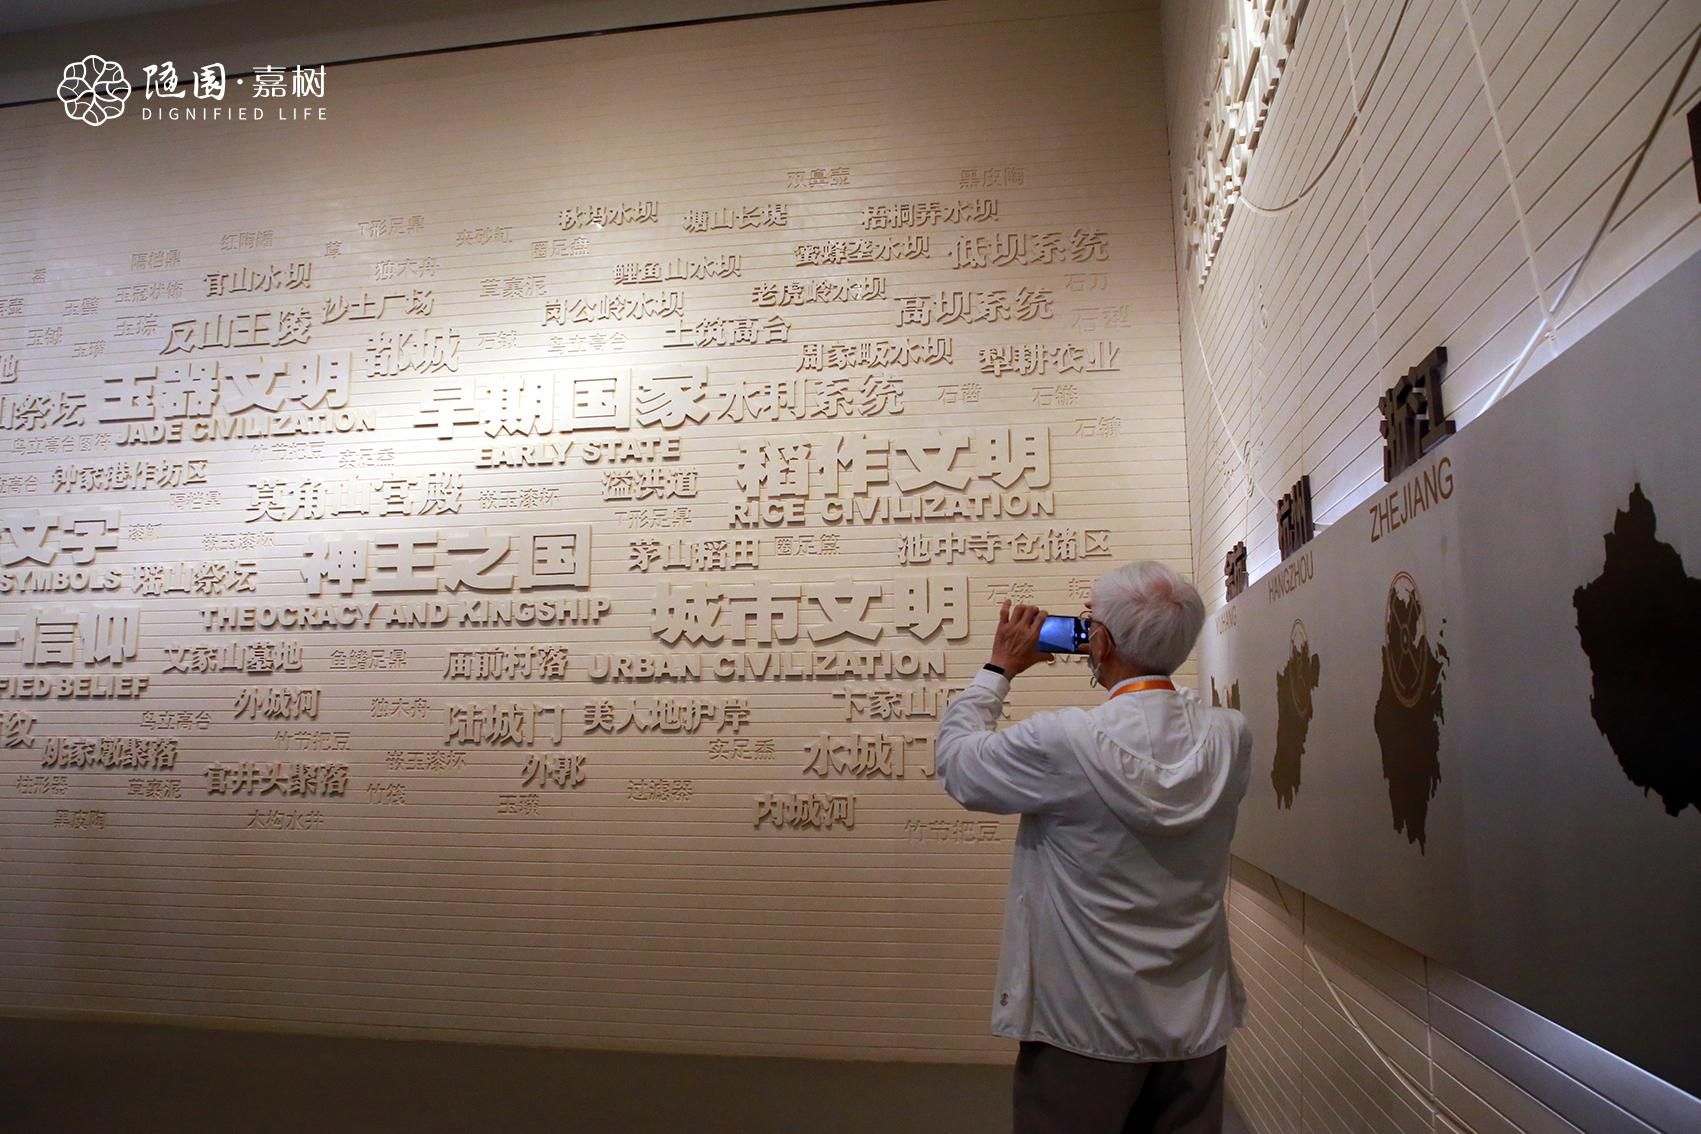 随园·嘉树
DIGNIFIED LIFE
双鼻壶
黑皮陶
秋坞水坝
塘山长堤
梧桐弄水坝
T形足鼎
夹砂缸
圈足盉
蜜蜂垄水坝
低坝系统
红陶罐
隔档鼎
官山水坝
独木舟
草裹泥
鲤鱼山水坝
老虎岭水坝
高坝系统
石刀
玉璧
玉冠状饰
沙土广场
岗公岭水坝
石犁
玉钺
玉琮
玉璜
反山王陵
都城
石钺
鸟立高台
土筑高台
周家畈水坝
犁耕农业
山祭坛
玉器文明
JADE CIVILIZATION
早期国家
EARLY STATE
水利系统
石凿
石镞
石镰
鸟立高台图符
竹节把豆
实足盉
稻作文明
RICE CIVILIZATION
立高台
钟家港作坊区
隔档鼎
莫角山宫殿
嵌玉漆杯
溢洪道
T形足鼎
文字
SYMBOLS
漆觚
嵌玉漆杯
瑶山祭坛
神王之国
THEOCRACY AND KINGSHIP
茅山稻田
圈足簋
池中寺仓储区
信仰
FIED BELIEF
文家山墓地
鱼鳍足鼎
庙前村落
城市文明
URBAN CIVILIZATION
外城河
独木舟
陆城门
美人地护岸
卞家山
鸟立高台
姚家墩聚落
竹节把豆
嵌玉漆杯
外郭
实足盉
水城门
柱形器
草裹泥
官井头聚落
竹筏
玉璜
过滤器
内城河
黑皮陶
木构水井
竹节把豆
余杭
YUHANG
杭州
HANGZHOU
浙江
ZHEJIANG